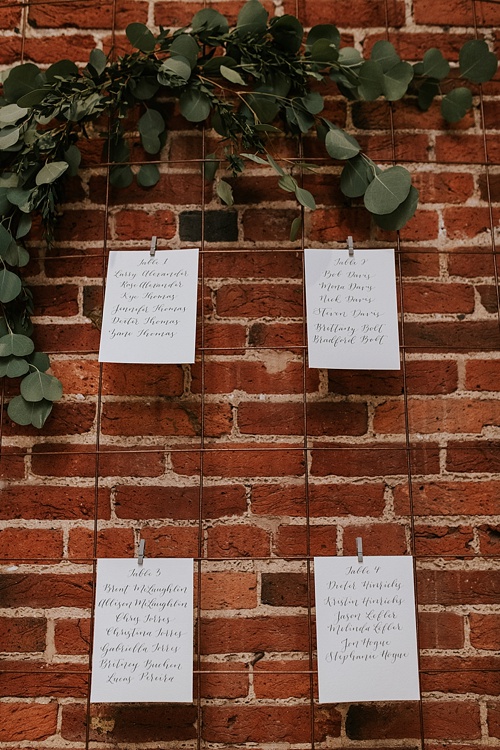 Table 1
Larry Alexander
Rose Alexander
Kye Thomas
Jennifer Thomas
Dexter Thomas
Gano Thomas
Table 2
Bob Davis
Mara Davis
Nick Davis
Steven Davis
Brittany Bolt
Bradford Bolt
Table 3
Brent McLaughlin
Allison McLaughlin
Chris Torres
Christina Torres
Gabriella Torres
Britney Buchen
Lucas Pereira
Table 4
Dexter Hinrichs
Kristin Hinrichs
Jason Lefler
Melinda Lefler
Jon Hogue
Stephanie Hogue